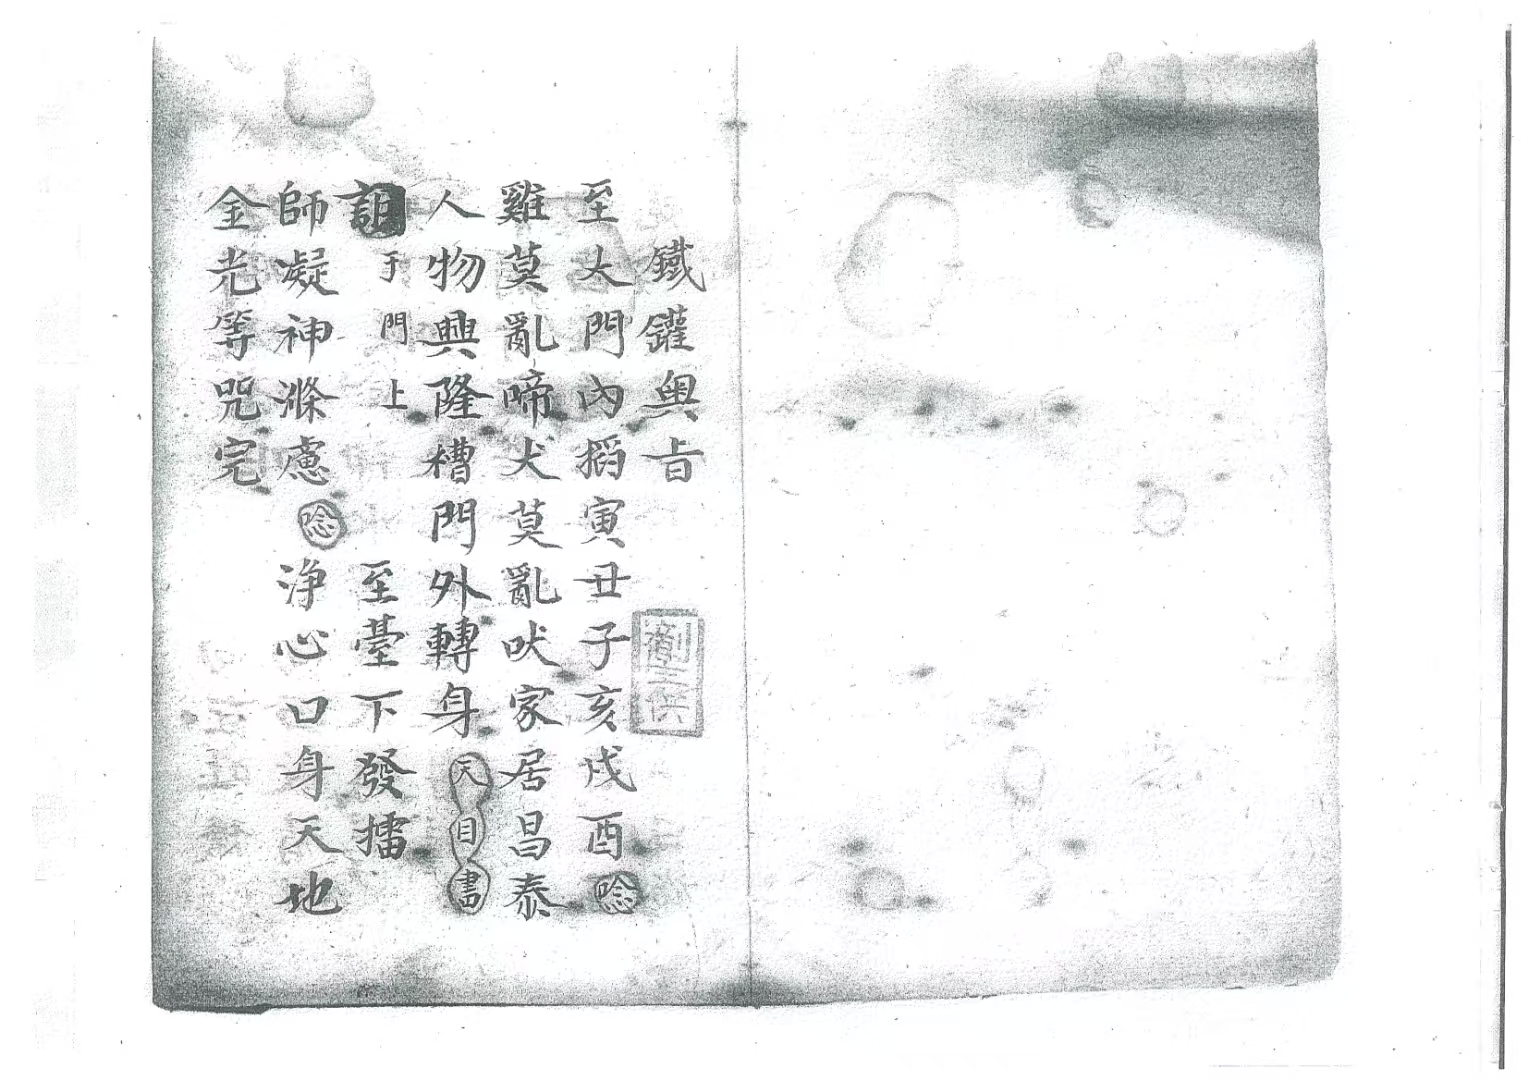 鐵鑵奥旨
至大門內搯寅丑子亥戌酉唸
雞莫亂啼犬莫亂吠家居昌泰
人物興隆槽門外轉身天目書
于門上 至臺下發擂
師凝神滌慮唸淨心口身天地
金光等咒完